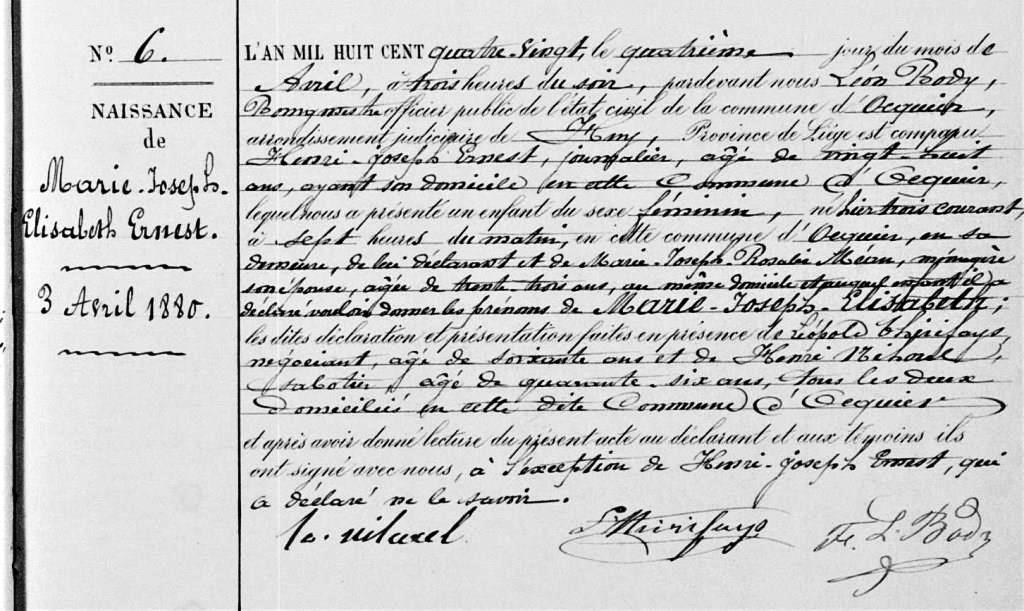 N° 6.
NAISSANCE
de
Marie-Joseph-
Elisabeth Ernest.
3 Avril 1880.
L'AN MIL HUIT CENT quatre-vingt, le quatrième jour du mois de
Avril, à trois heures du soir, pardevant nous Léon Body,
Bourgmestre officier public de l'état civil de la commune d'Ocquier,
arrondissement judiciaire de Huy, Province de Liège est comparu
Henri-Joseph Ernest, journalier, agé de vingt-huit
ans, ayant son domicile en cette Commune d'Ocquier,
lequel nous a présenté un enfant du sexe féminin, né hier trois courant,
à sept heures du matin, en cette commune d'Ocquier, en sa
demeure, de lui déclarant et de Marie-Joseph-Rosalie, ménagère
son épouse, agée de trente-trois ans, au même domicile et auquel enfant il a
déclaré vouloir donner les prénoms de Marie-Joseph-Elisabeth;
les dites déclaration et présentation faites en présence de Léopold Thirifays,
négociant, agé de soixante ans et de Henri
sabotier, agé de quarante-six ans, tous les deux
domiciliés en cette dite Commune d'Ocquier
et après avoir donné lecture du présent acte au déclarant et aux témoins ils
ont signé avec nous, à l'exception de Henri-Joseph Ernest, qui
a déclaré ne le savoir.
L Thirifays F. L. Body